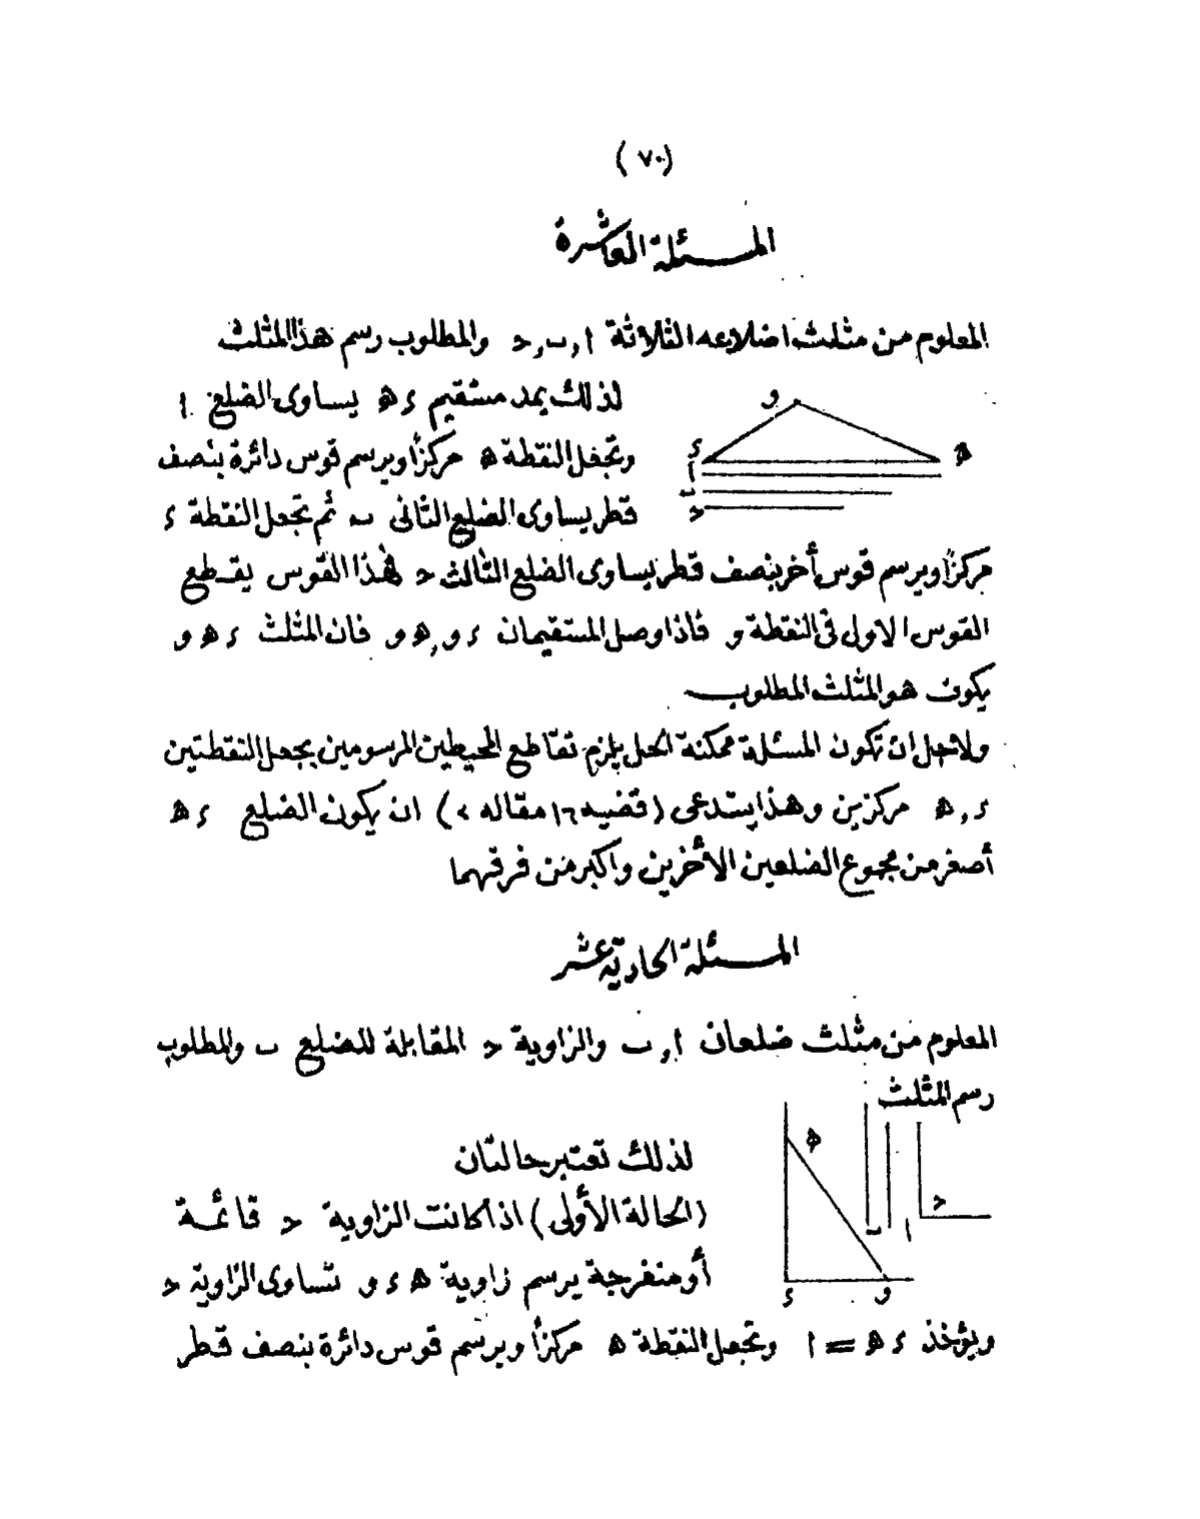 (٧٠)
المسئلة العاشرة
المعلوم من مثلث اضلاعه الثلاثة ا , ب , ح والمطلوب رسم هذا المثلث
و
لذلك يمد مستقيم ء ه يساوى الضلع ا
ء ه
وتجعل النقطة ه مركزا ويرسم قوس دائرة بنصف
ا
ب
قطر يساوى الضلع الثانى ب ثم تجعل النقطة ء
ح
مركزا ويرسم قوس أخر بنصف قطر يساوى الضلع الثالث ح فهذا القوس يقطع
القوس الاول فى النقطة و فاذا وصل المستقيمان ء و , ه و فان المثلث ء ه و
يكون هو المثلث المطلوب
ولاجل ان تكون المسئلة ممكنة الحل يلزم تقاطع المحيطين المرسومين بجعل النقطتين
ء , ه مركزين وهذا يستدعى (قضيه ١٦ مقاله ٢) ان يكون الضلع ء ه
أصغر من مجموع الضلعين الأخرين واكبر من فرقهما
المسئلة الحادية عشر
المعلوم من مثلث ضلعان ا , ب والزاوية ح المقابلة للضلع ب والمطلوب
رسم المثلث
ه
لذلك تعتبر حالتان
(الحالة الأولى) اذا كانت الزاوية ح قائمة
ح
ب ا
أو منفرجة يرسم زاوية ه ء و تساوى الزاوية ح
ء و
ويؤخذ ء ه = ا وتجعل النقطة ه مركزا ويرسم قوس دائرة بنصف قطر